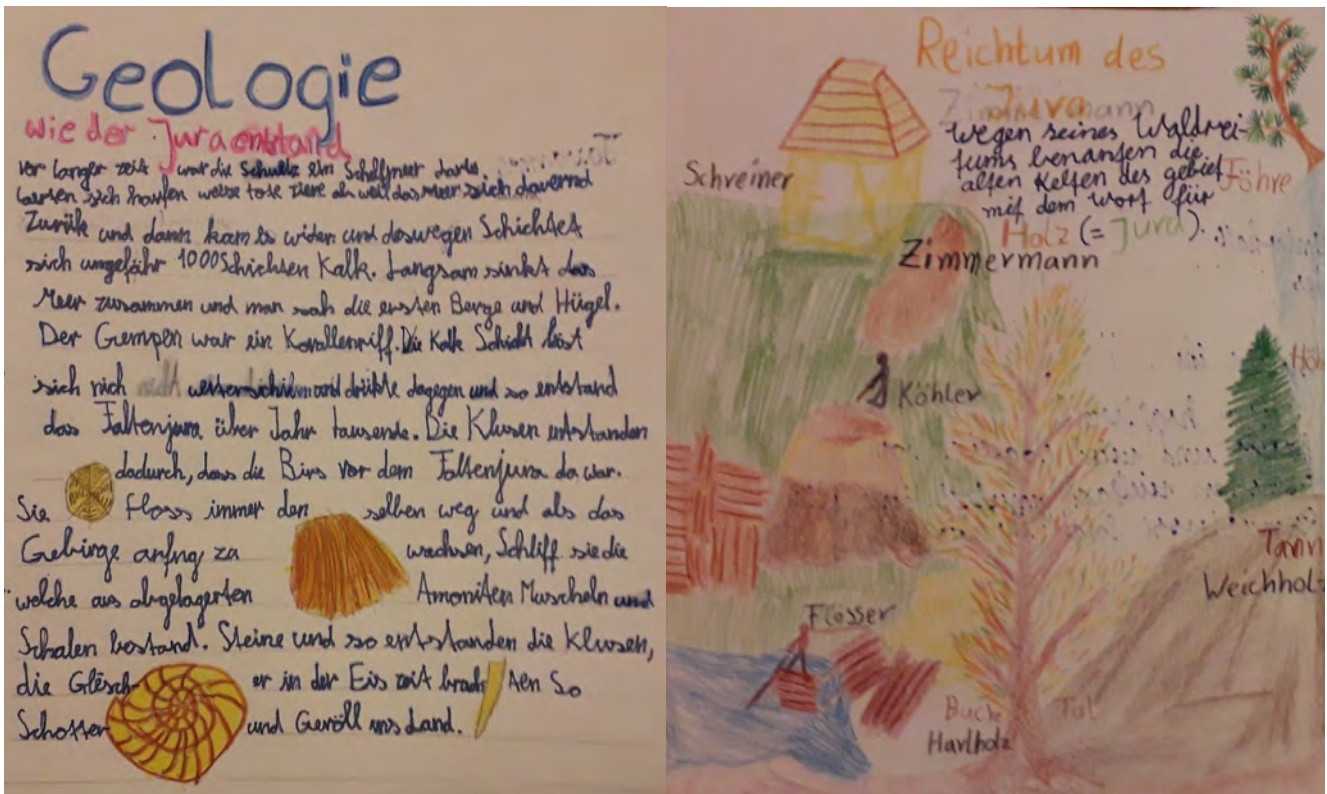 Geologie
wie der Jura entstand
vor langer zeit war die Schweiz ein Schelfmeer darte.
laerten sich haufen weise tote Tiere ab weil das Meer sich dauernd
Zurük und dann kam es wider und deswegen Schichtet
sich ungefähr 1000 Schichten Kalk. Langsam sinkt das
Meer zusammen und man sah die ersten Berge und Hügel.
Der Gempen war ein Korallenriff. Die Kalk Schicht läst
sich nich und drükte dagegen und so entstand
das Faltenjura über Jahr tausende. Die Klusen entstanden
dadurch, dass die Birs vor dem Faltenjura da war.
Sie floss immer den selben weg und als das
Gebirge anfng za wachsen, Schliff sie die
welche aus abgelagerten Amoniten Muscheln und
Schalen bestand. Steine und so entstanden die Klusen,
die Glësch er in der Eis zeit brach ten So
Schotter und Geröll ins Land.
Reichtum des
Jura
Zimmermann
wegen seines Waldrei-
tums benanten die
alten Kelten des gebiet
mit dem wort für
Holz (= Jura).
Föhre
Schreiner
Zimmermann
Köhler
Flösser
Buche
Hartholz
Tal
Tann
Weichholz